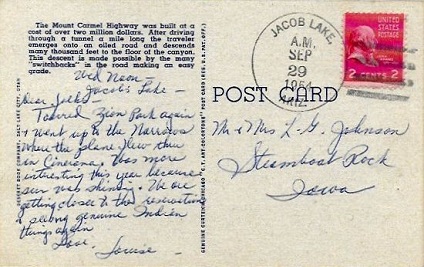 The Mount Carmel Highway was built at a
cost of over two million dollars. After driving
through a tunnel a mile long the traveler
emerges onto an oiled road and descends
many thousand feet to the floor of the canyon.
This descent is made possible by the many
"switchbacks" in the road making an easy
grade.
Wed Noon -
Jacob's Lake -
Dear Folks -
Toured Zion Park again
& went up to the Narrows
where the plane flew thru
in Cinerama. Was more
interesting this year because
sun was shining. We are
getting closer to the reservations
& seeing genuine Indian
things again
Love,
Louise -
GENUINE CURTEICH-CHICAGO "C.T. ART-COLORTONE" POST CARD (REG. U.S. PAT. OFF.)
POST CARD
JACOB LAKE,
A.M.
SEP
29
1954
ARIZ.
UNITED STATES
POSTAGE
2 CENTS 2
Mr & Mrs L. G. Johnson
Steamboat Rock
Iowa